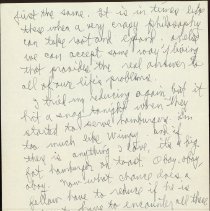 just the same. It is in times like
these when a very crazy philosophy
can take root and spark unless
we can accept some way of living
that provides the real answer to
all of our life's problems.
I tried my reducing again but it
hit a snag tonight when they
started to serve hamburgers. I'm
too much like Wimpy and if
there is anything I love, it's a big
fat hamburger on toast. Okay, okay,
okay. Now what chance does a
fellow have to reduce if he is
to have to encounter all these